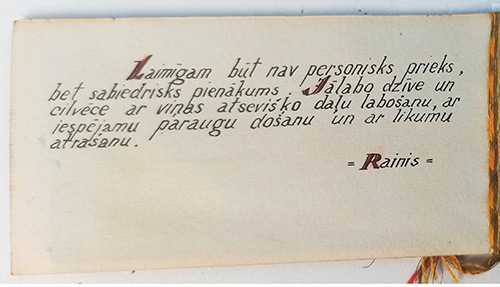 Laimīgam būt nav personisks prieks,
bet sabiedrisks pienākums. Jālabo dzīve un
cilvēce ar viņas atsevišķo daļu labošanu, ar
iespējamu paraugu došanu un ar likumu
atrašanu.
= Rainis =